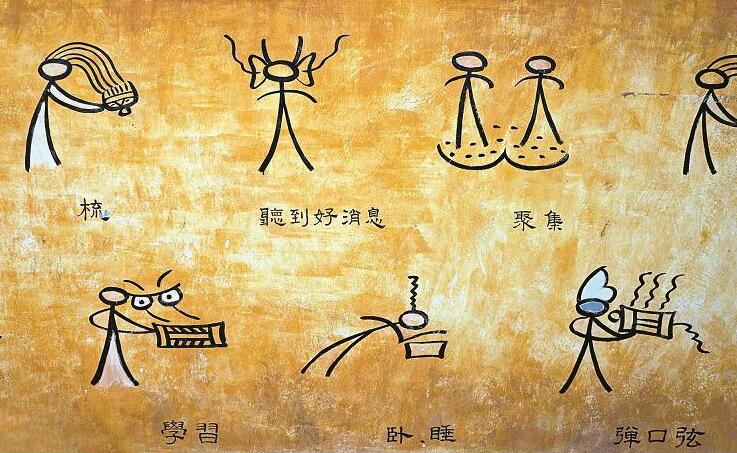 梳
聽到好消息
聚集
學習
卧睡
彈口弦